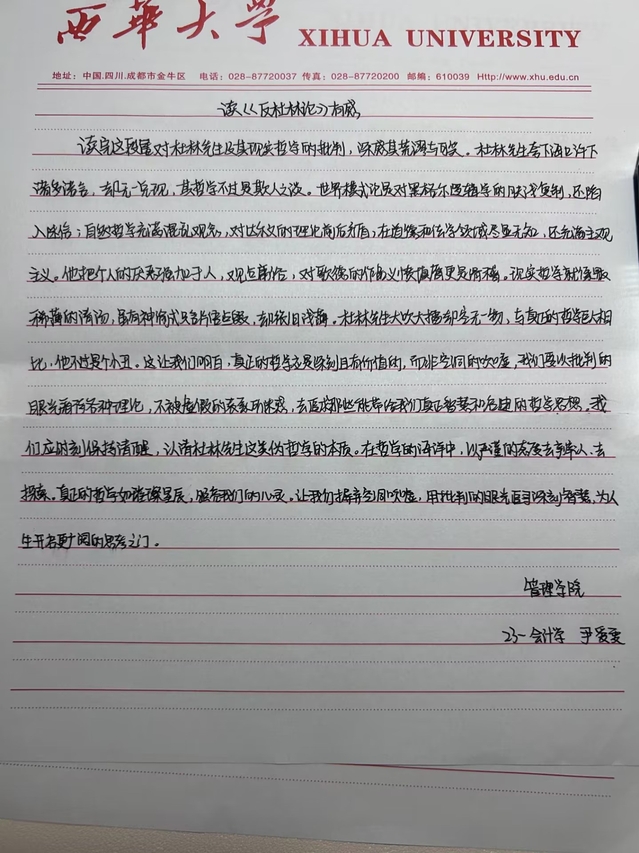 西華大学 XIHUA UNIVERSITY
地址：中国.四川.成都市金牛区 电话：028-87720037 传真：028-87720200 邮编：610039 Http://www.xhu.edu.cn
读《《反杜林论》》有感
读完这段对杜林先生及其现实哲学的批判，深感其荒谬与可笑。杜林先生夸下海口许下
诸多诺言，却无一兑现，其哲学不过是欺人之谈。世界模式论是对黑格尔逻辑学的肤浅复制，还陷
入迷信；自然哲学充满混乱观念，对达尔文的理论前后矛盾；在道德和法学领域尽显无知，还充满主观
主义。他把个人的厌恶强加于人，观点庸俗，对歌德的作品义愤填膺更是滑稽。现实哲学就像最
稀薄的清汤，虽有神谕式只言片语点缀，却依旧浅薄。杜林先生大吹大擂却空无一物，与真正的哲学巨人相
比，他不过是个小丑。这让我们明白，真正的哲学应是深刻且有价值的，而非空洞的吹嘘，我们要以批判的
眼光看待各种理论，不被虚假的表象所迷惑，去追求那些能带给我们真正智慧和启迪的哲学思想。我
们应时刻保持清醒，认清杜林先生这类伪哲学的本质。在哲学的海洋中，以严谨的态度去求索、去
探索。真正的哲学如璀璨星辰，照亮我们的心灵。让我们摒弃空洞吹嘘，用批判的眼光追寻深刻智慧，为人
生开启更广阔的思考之门。
管理学院
23-会计学 尹爱雯